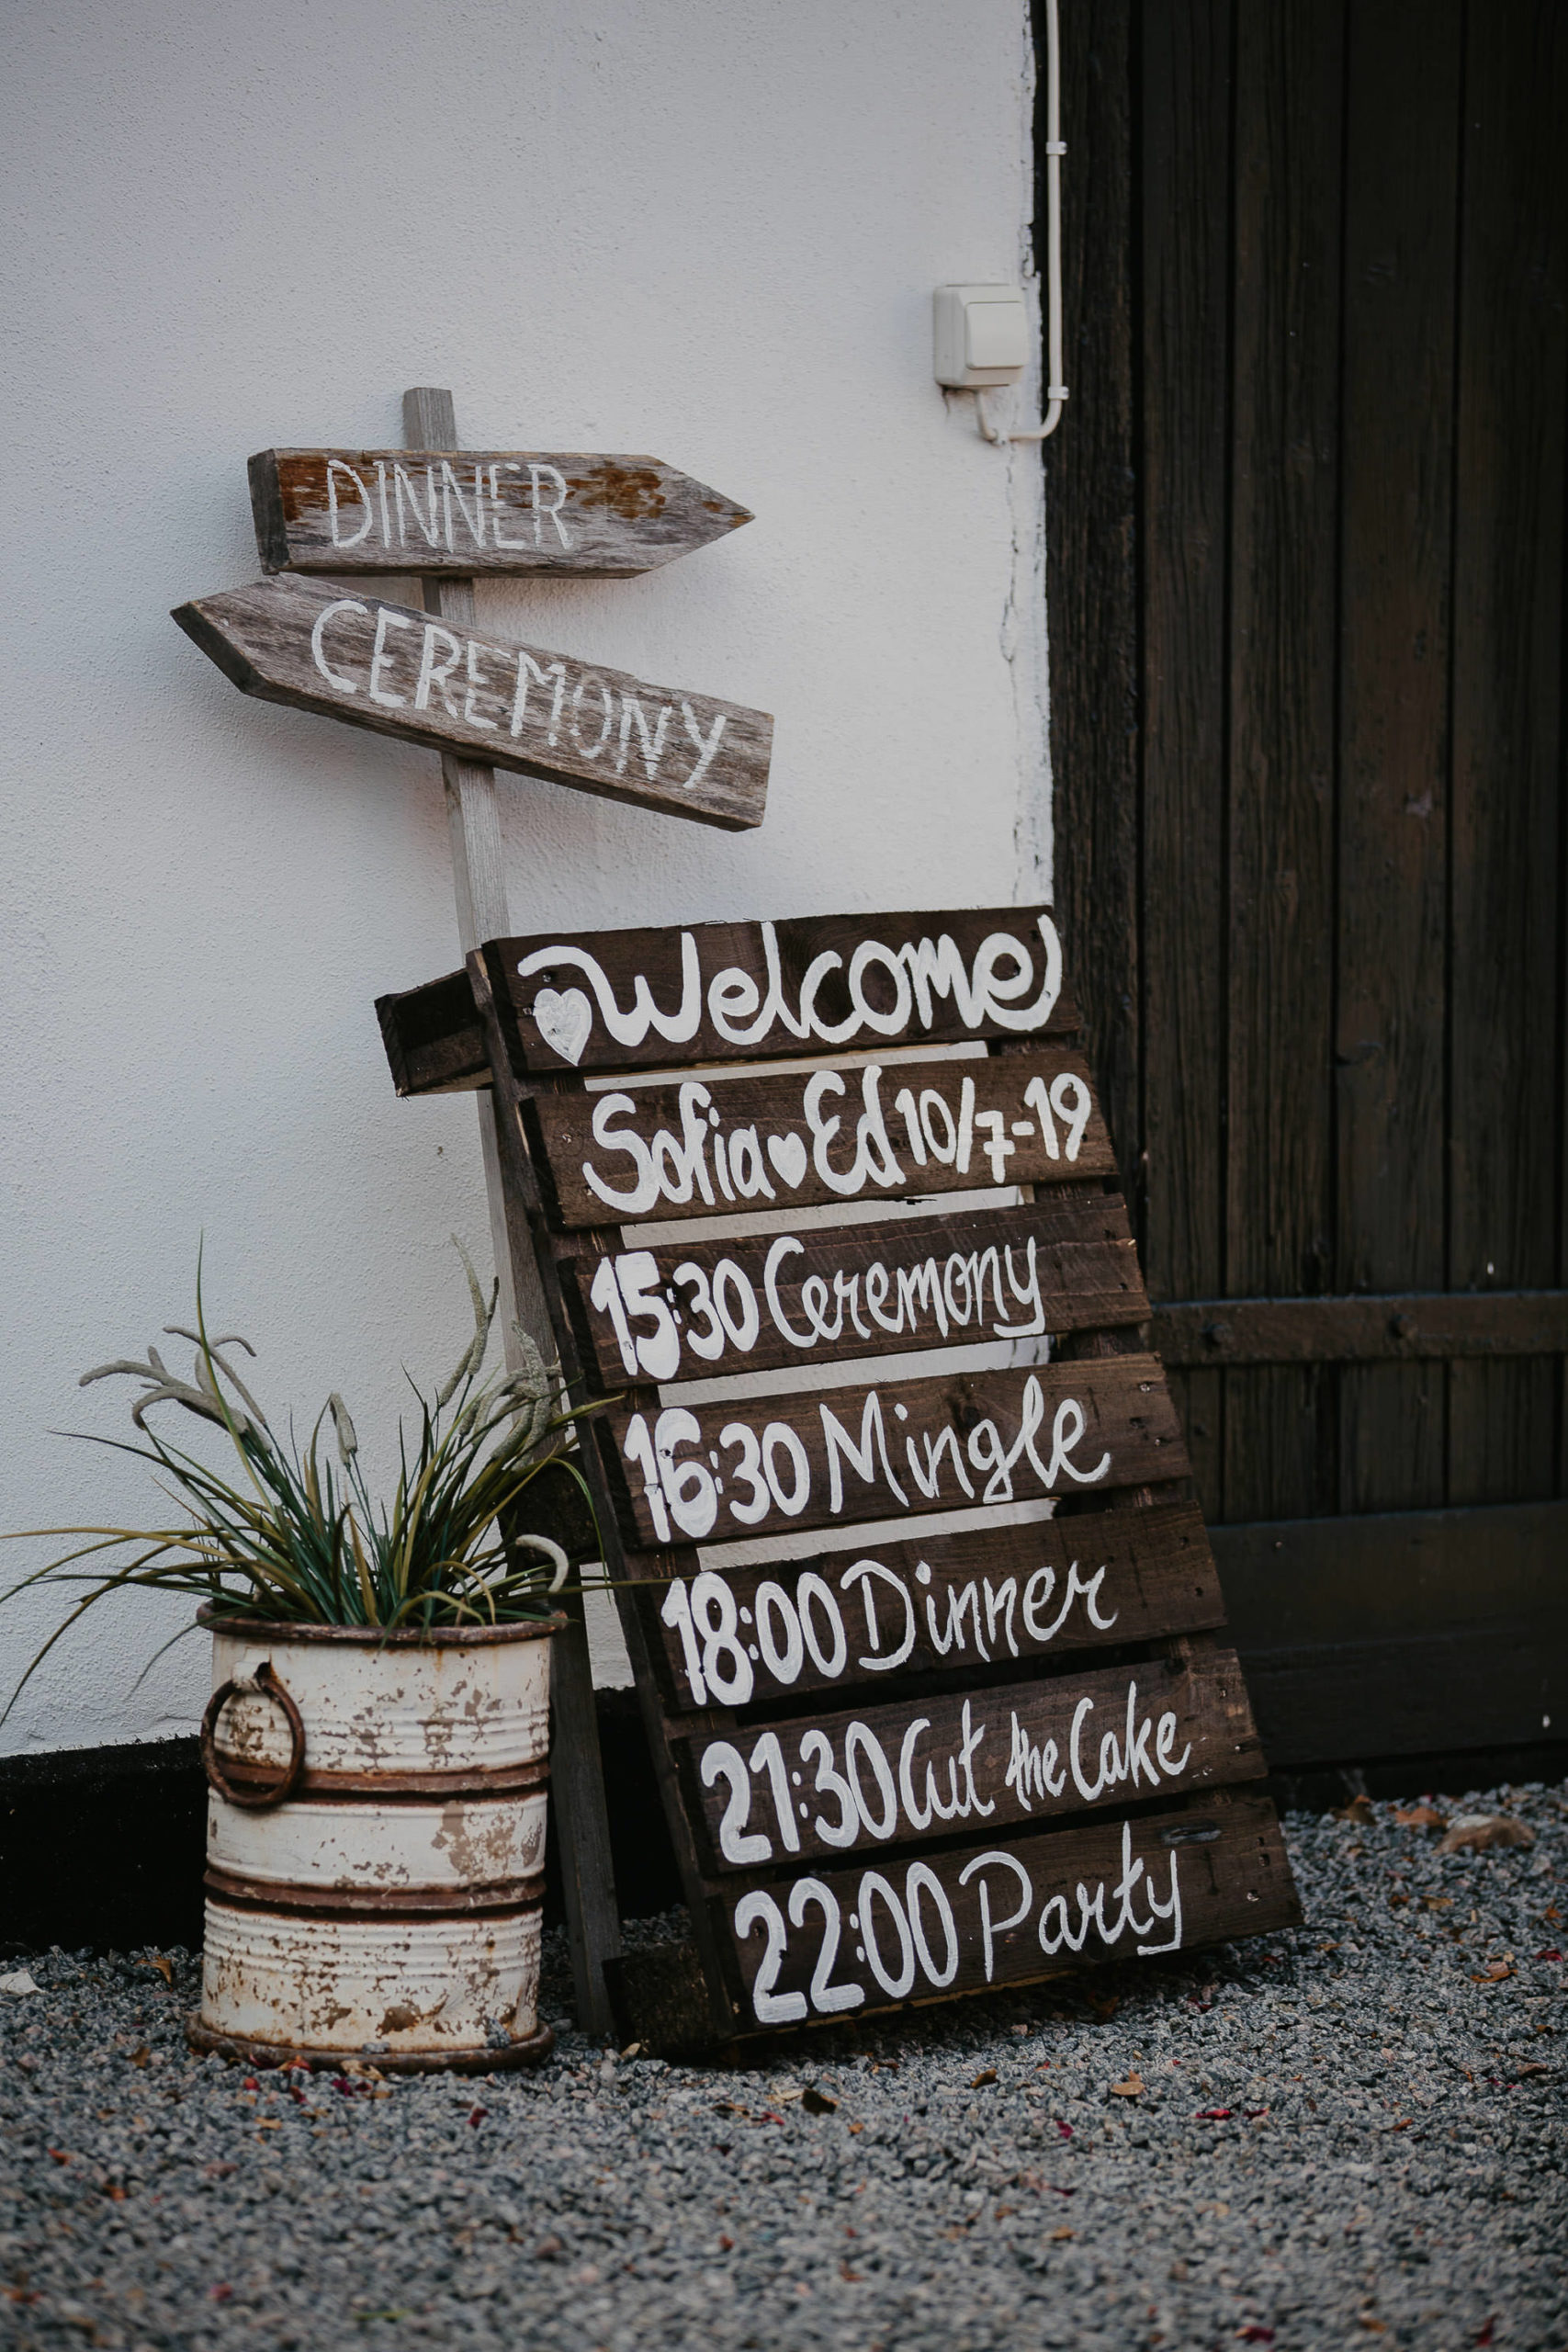 DINNER
CEREMONY
Welcome
Sofia♥Ed 10/7-19
15:30 Ceremony
16:30 Mingle
18:00 Dinner
21:30 Cut the Cake
22:00 Party